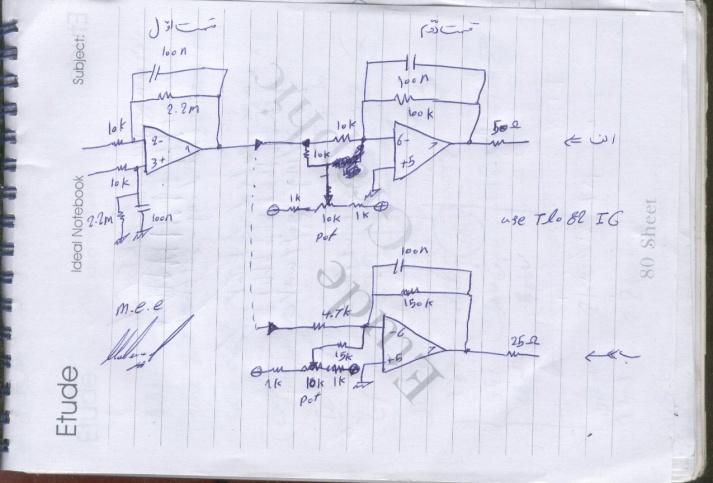 Subject:
قسمت اول
قسمت دوم
100n
2.2m
10k
2-
3+
1
10k
2.2M
100n
100n
100k
10k
10k
6-
+5
7
50Ω
1k
10k
1k
pot
use Tlo82 IG
100n
150k
4.7k
15k
-6
+5
7
25Ω
1k
10k
1k
pot
m.e.e
Ideal Notebook
Etude
80 Sheet
Etude
Graphic